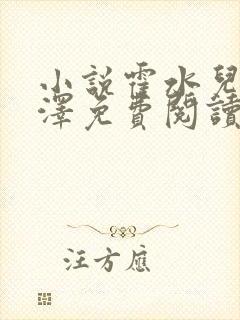 小說霍水兒
澤免費閱讀
汪方應